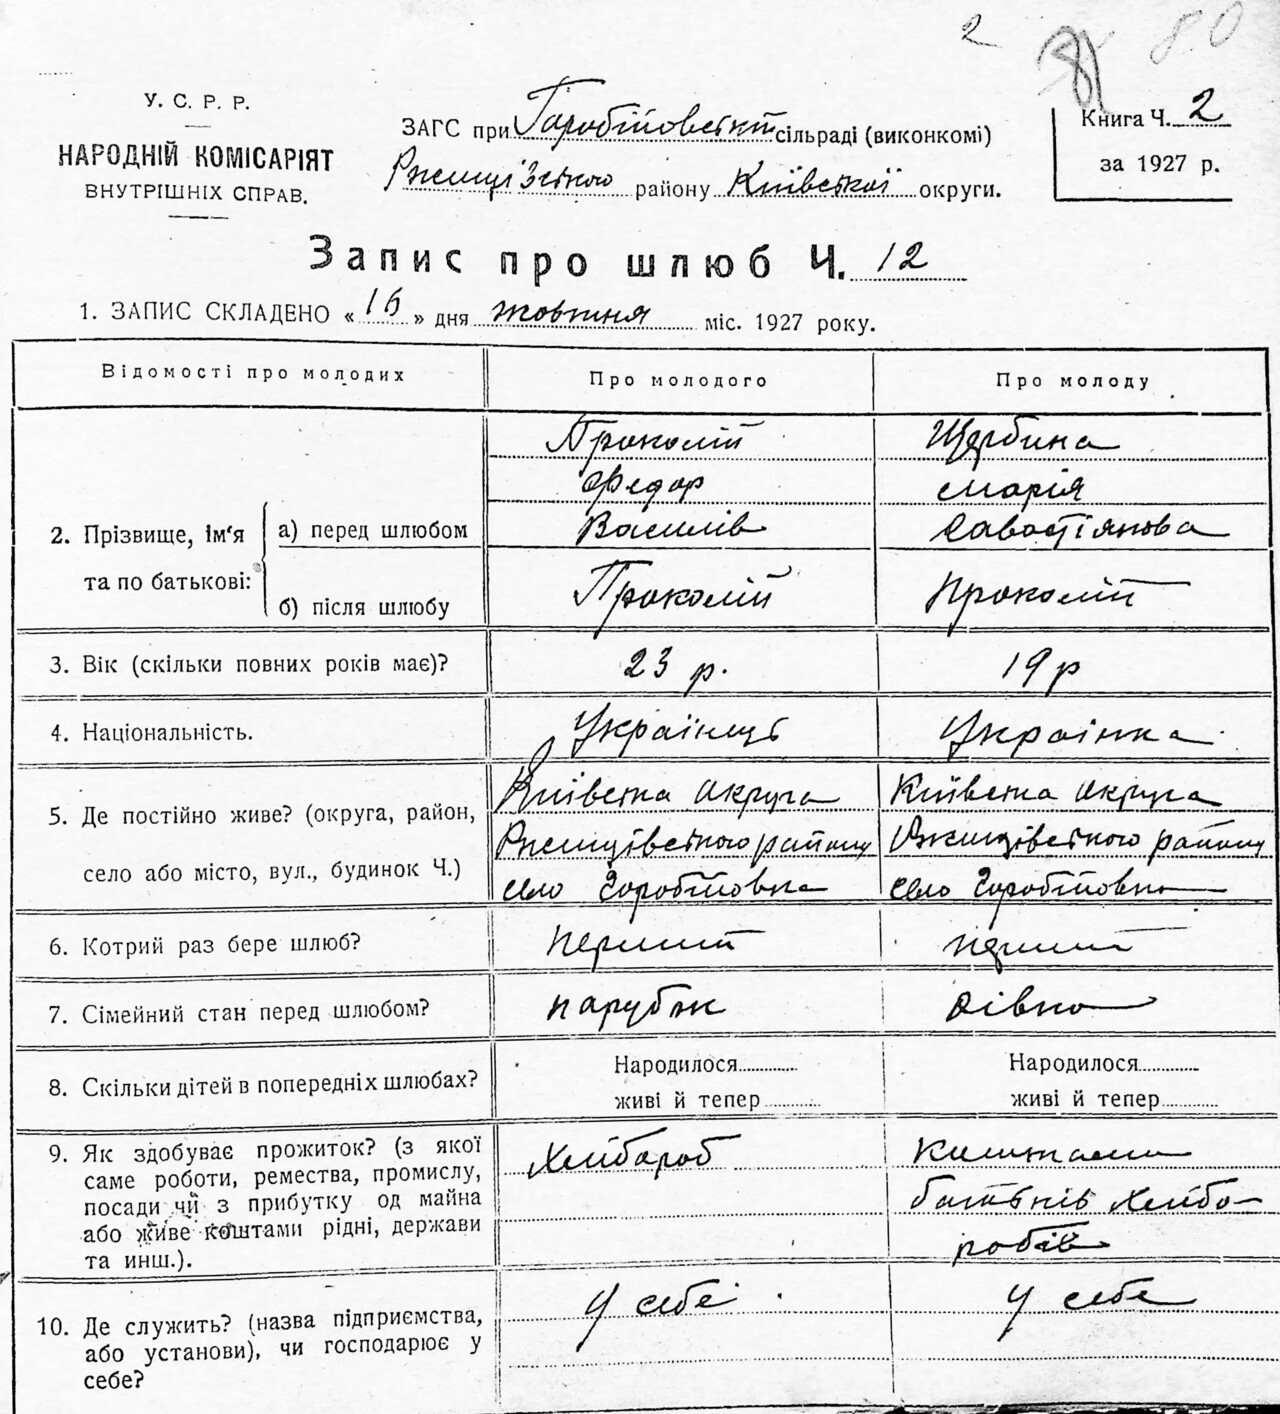 2 81 80
У. С. Р. Р.
НАРОДНІЙ КОМІСАРІЯТ
ВНУТРІШНІХ СПРАВ.
ЗАГС при Горобіївській сільраді (виконкомі)
Ржищівського району Київської округи.
Книга Ч. 2
за 1927 р.
Запис про шлюб Ч. 12
1. ЗАПИС СКЛАДЕНО « 16 » дня жовтня міс. 1927 року.
Відомості про молодих Про молодого Про молоду
2. Прізвище, ім'я та по батькові:
а) перед шлюбом
Прокопій Щербина
Федор Марія
Василів Савостіянова
б) після шлюбу Прокопій Прокопій
3. Вік (скільки повних років має)? 23 р. 19 р
4. Національність. Українець Українка
5. Де постійно живе? (округа, район,
село або місто, вул., будинок Ч.)
Київська округа Київська округа
Ржищівського району Ржищівського району
село Горобіївка село Горобіївка
6. Котрий раз бере шлюб? перший перший
7. Сімейний стан перед шлюбом? парубок дівка
8. Скільки дітей в попередніх шлюбах? Народилося Народилося
живі й тепер живі й тепер
9. Як здобуває прожиток? (з якої
саме роботи, ремества, промислу,
посади чи з прибутку од майна
або живе коштами рідні, держави
та инш.).
Хлібороб
Коштами
батьків хлібо-
робів
10. Де служить? (назва підприємства,
або установи), чи господарює у
себе?
У себе У себе